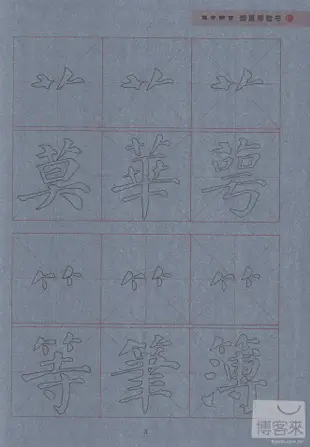 艹 艹 艹
莫 華 萼
⺮ ⺮ ⺮
等 筆 簿
博客來